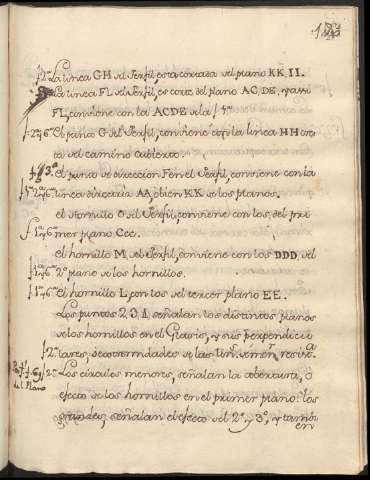 f 2ª La linea GH del Perfil, esta cortada del plano KK, II.
La linea FL del Perfil, es corte del plano AC, DE, y assi
FL, conviene con la ACDE de la f 1ª
f 2ª y 6ª El punto G del Perfil, conviene con la linea HH
del camino cubierto.
El punto de direccion F en el Perfil, conviene con la
f 1ª 2ª y 6ª linea directriz AA, o bien KK de los planos.
el Hornillo O del Perfil, conviene con los, del pri
f 1ª y 6ª mer plano Ccc.
el hornillo M, del Perfil, conviene con los DDD, del
f 1ª y 6ª 2º plano de los hornillos.
f 1ª y 6ª el hornillo L, con los del tercer plano EE.
Los puntos 2, 3, señalan los distintos planos
de los hornillos en el Glasis, y sus perpendicu
f 2ª lares, de las lin.
f 2ª Los circulos menores, señalan la abertura, o
del Plano
efecto de los hornillos en el primer plano: los
grandes, señalan el efecto del 2º y 3º, y tambi
en